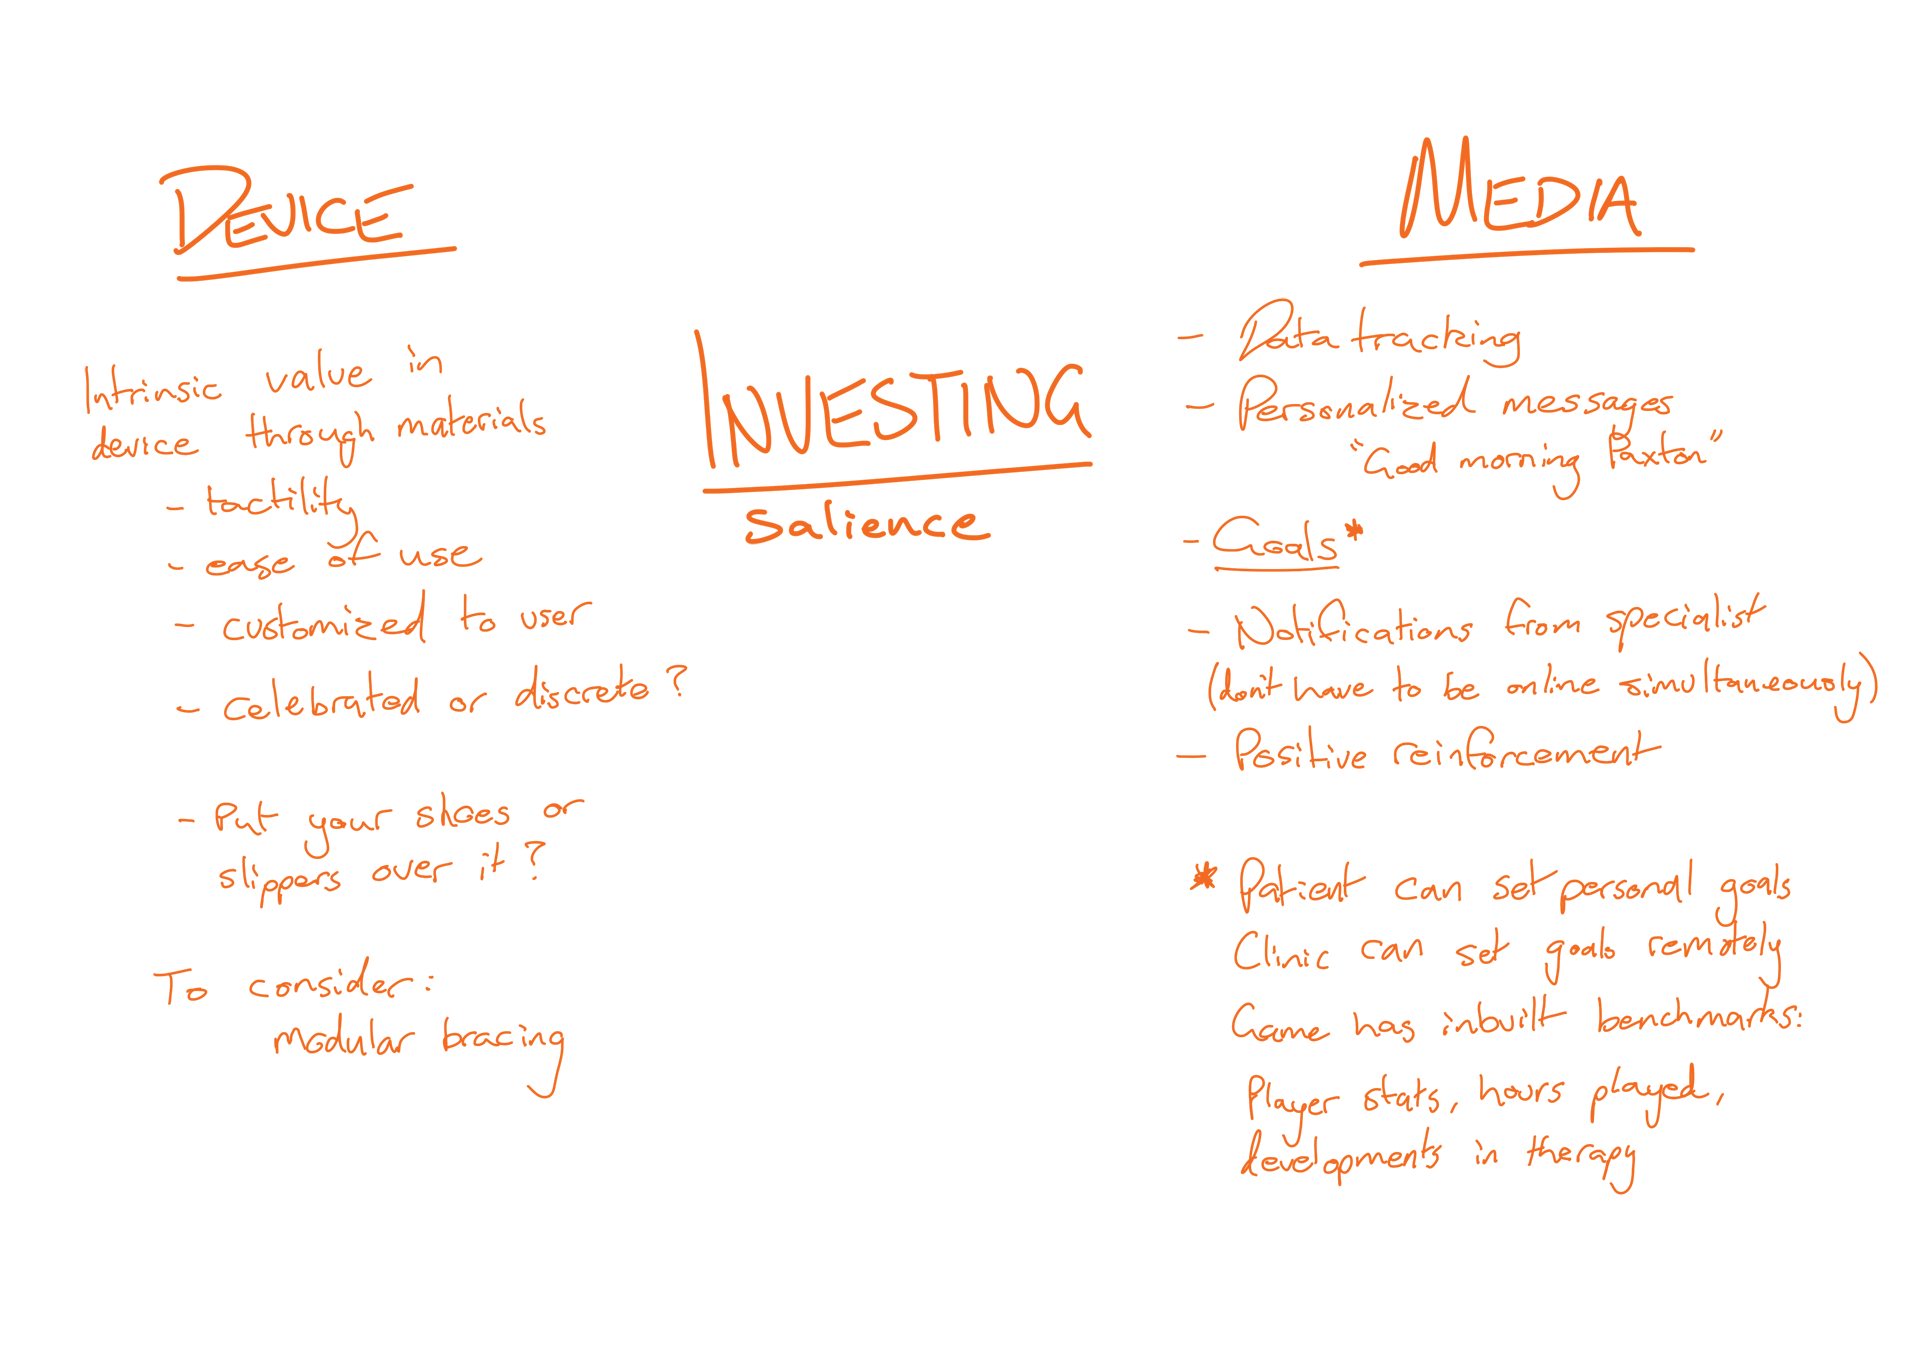 DEVICE
Intrinsic value in
device through materials
- tactility
- ease of use
- customized to user
- celebrated or discrete?
- Put your shoes or
slippers over it?
To consider:
modular bracing
INVESTING
salience
MEDIA
- Data tracking
- Personalized messages
"Good morning Paxton"
- Goals*
- Notifications from specialist
(don't have to be online simultaneously)
- Positive reinforcement
* Patient can set personal goals
Clinic can set goals remotely
Game has inbuilt benchmarks:
Player stats, hours played,
developments in therapy